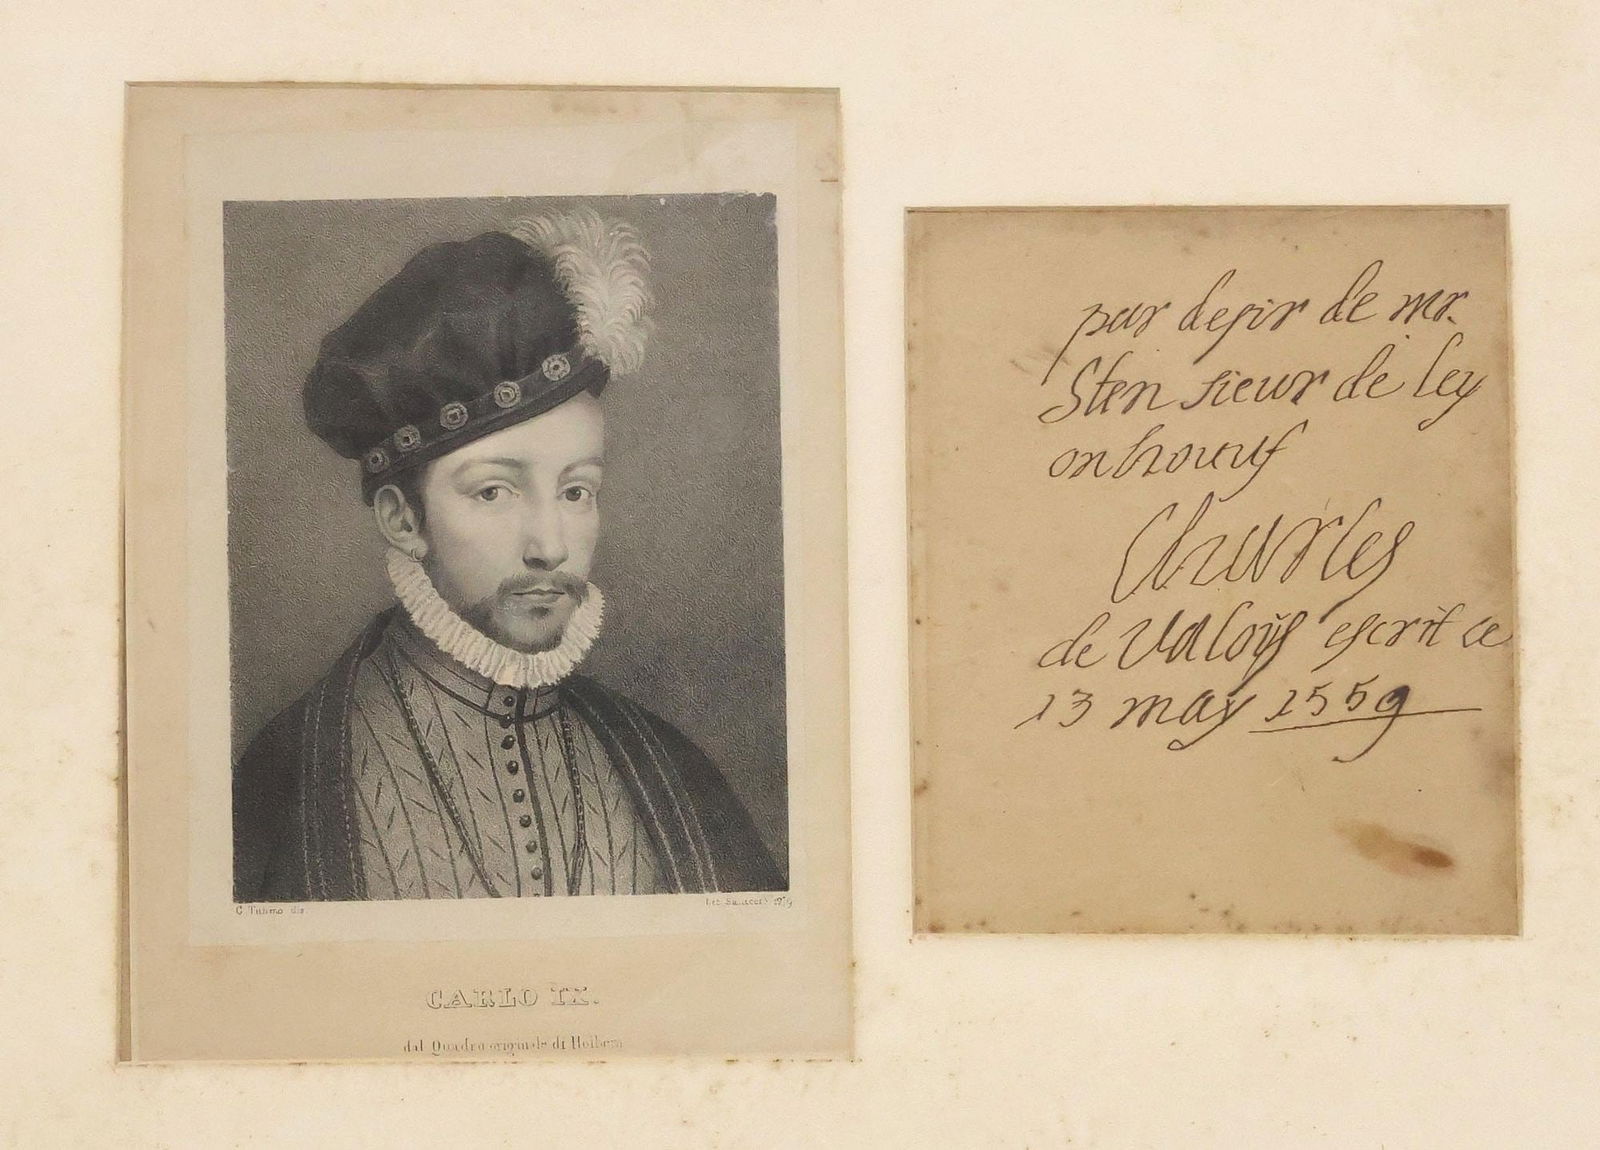 G. Turino dis.
CARLO IX.
dal Quadro originale di Holbein
par desir de mr.
Sten sieur de ley
onhouuf
Charles
de Valoÿs escrit ce
13 may 1559